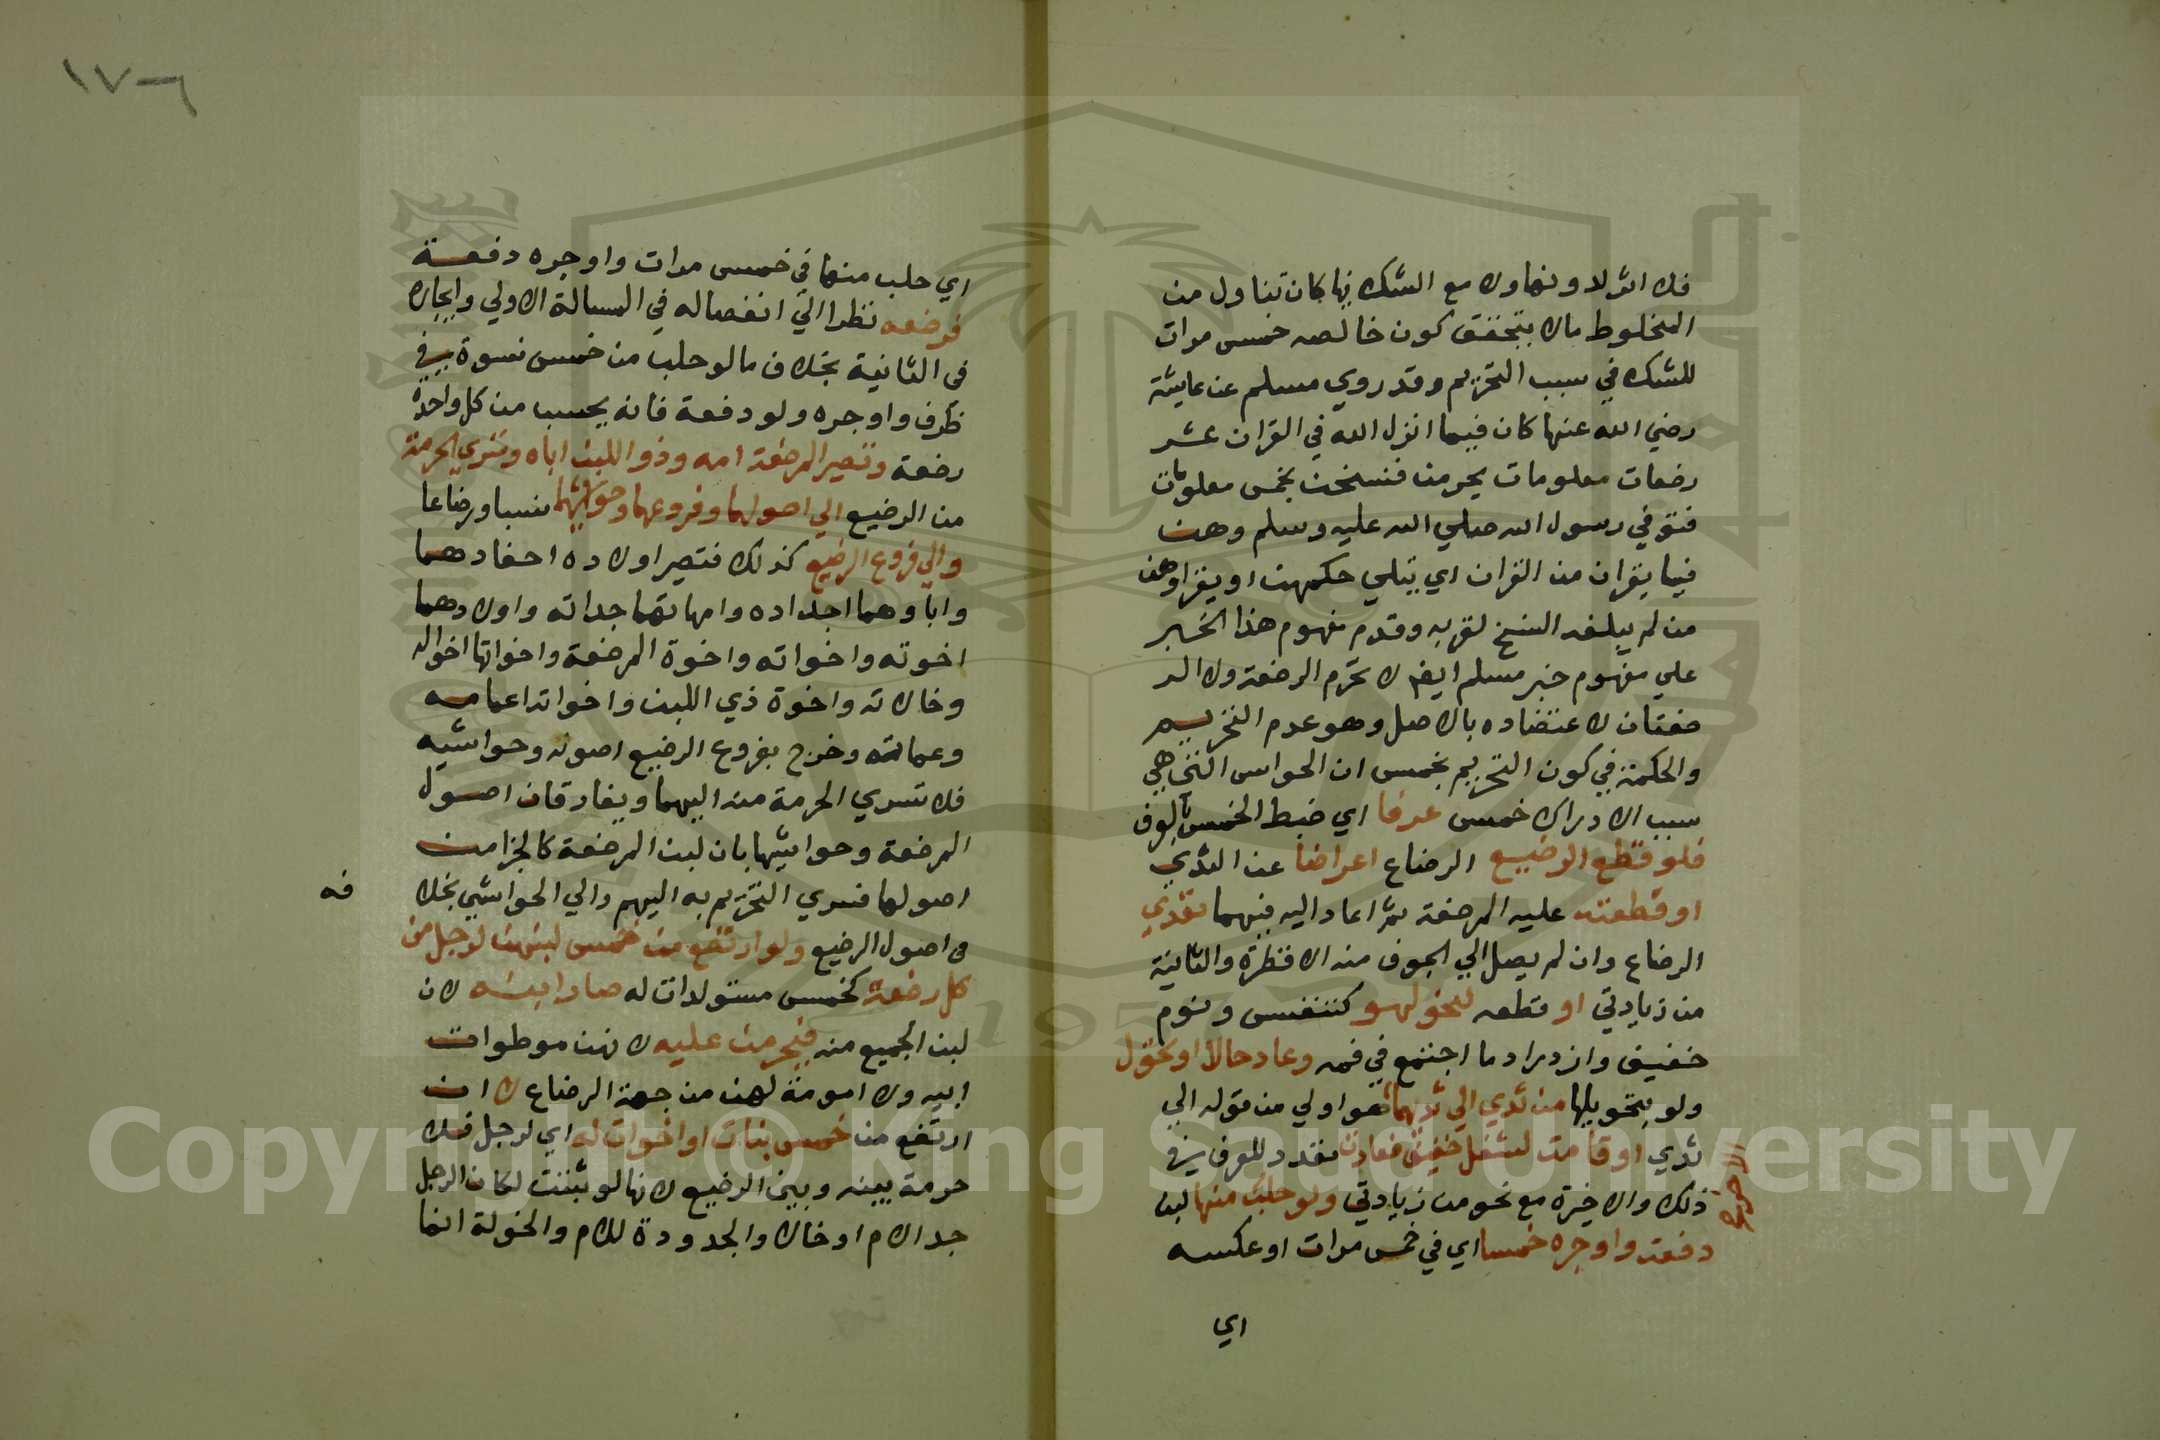 فلا اثر لدونها ولا مع الشك فيها كان تناول من
المخلوط مالا يتحقق كون خالصه خمس مرات
للشك في سبب التحريم وقد روي مسلم عن عايشة
رضي الله عنها كان فيما انزل الله في القران عشر
رضعات معلومات يحرمن فنسخن بخمس معلومات
فتوفي رسول الله صلي الله عليه وسلم وهن
فيما يقران من القران اي يتلي حكمهن او يقراوهن
من لم يبلغه النسخ لقربه وقدم مفهوم هذا الخبر
علي مفهوم خبر مسلم ايضا لا تحرم الرضعة ولا الر
ضعتان لاعتضاده بالاصل وهو عدم التحريم
والحكمة في كون التحريم بخمس ان الحواس التي هي
سبب الادراك خمس عرفا اي ضبط الخمس بالعرف
فلو قطع الرضيع الرضاع اعراضا عن الثدي
او قطعته عليه المرضعة ثم اعاد اليه فيهما تعدد
الرضاع وان لم يصل الي الجوف منه الا قطرة والثانية
من زيادتي او قطعه لنحو لهو كتنفس ونوم
خفيف وازدراد ما اجتمع في فمه وعاد حالا او تحول
ولو بتحويلها من ثدي الي ثديها هو اولي من قوله الي
ثدي او قامت لشغل خفيف فعادت فلا تعدد للعرف في
ذلك والاخيرة مع نحو من زيادتي ولو حلب منها لبن
دفعة واوجره خمسا اي في خمس مرات او عكسه
اي
١٧٦
اي حلب منها في خمس مرات واوجره دفعة
فرضعه نظرا الي انفصاله في المسالة الاولي وايجاره
في الثانية بخلاف مالو حلب من خمس نسوة في
ظرف واوجره ولو دفعة فانه يحسب من كل واحدة
رضعة وتصير المرضعة امه وذو اللبن اباه وتسري الحرمة
من الرضيع الي اصولهما وفروعهما وحواشيهما نسبا ورضاعا
والي فروع الرضيع كذلك فتصير اولاده احفادهما
واباوهما اجداده وامهاتهما جداته واولادهما
اخوته واخواته واخوة المرضعة واخواتها اخواله
وخالاته واخوة ذي اللبن واخواته اعمامه
وعماته وخرج بفروع الرضيع اصوله وحواشيه
فلا تسري الحرمة منه اليهما ويفارقان اصول
المرضعة وحواشيها بان لبن المرضعة كالجزء من
اصولها فسري التحريم به اليهم والي الحواشي بخلا
فه
في اصول الرضيع ولو ارتضع من خمس لبنهن لرجل من
كل رضعة كخمس مستولدات له صار ابنه لان
لبن الجميع منه فيحرمن عليه لانهن موطوات
ابيه ولا امومة لهن من جهة الرضاع لا ان
ارتضع من خمس بنات او اخوات له اي لرجل فلا
حرمة بينه وبين الرضيع لانها لو ثبتت لكان الرجل
جد الام او خالا والجدودة للام والخولة انما